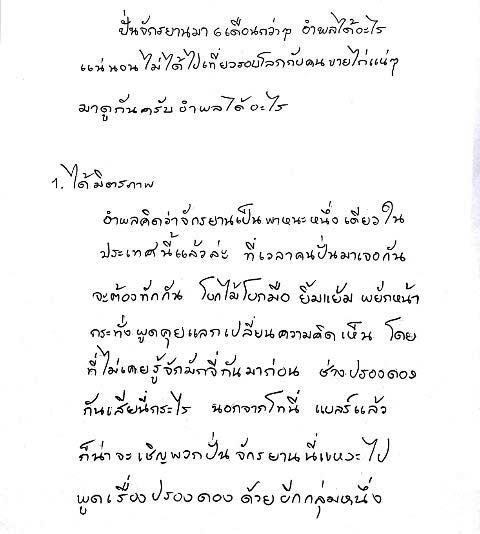 ปั่นจักรยานมา 6 เดือนกว่าๆ อำพลได้อะไร
แน่นอนไม่ได้ไปเที่ยวรอบโลกกับคนขายไก่แน่ๆ
มาดูกันครับ อำพลได้อะไร
1. ได้มิตรภาพ
อำพลคิดว่าจักรยานเป็นพาหนะหนึ่งเดียวใน
ประเทศนี้แล้วล่ะ ที่เวลาคนปั่นมาเจอกัน
จะต้องทักกัน โบกไม้โบกมือ ยิ้มแย้ม พยักหน้า
กระทั่งพูดคุยแลกเปลี่ยนความคิดเห็น โดย
ที่ไม่เคยรู้จักมักจี่กันมาก่อน ช่างปรองดอง
กันเสียนี่กระไร นอกจากโทนี่ แบลร์แล้ว
ก็น่าจะเชิญพวกปั่นจักรยานนี่แหละไป
พูดเรื่องปรองดองด้วยอีกกลุ่มหนึ่ง